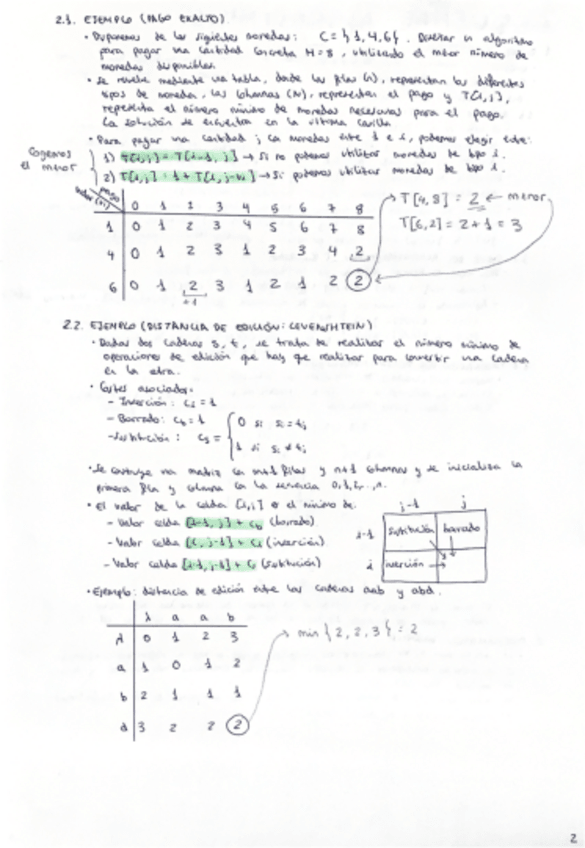 2.1. EJEMPLO (PAGO EXACTO)
• Disponemos de las siguientes monedas: C = {1,4,6}. Diseñar un algoritmo
para pagar una cantidad concreta M=8, utilizando el menor número de
monedas disponibles.
• Se resuelve mediante una tabla, donde las filas (n), representan los diferentes
tipos de moneda, las columnas (M), representan el pago y T[i,j],
representa el número mínimo de monedas necesarias para el pago.
La solución se encuentra en la última casilla.
• Para pagar una cantidad j con monedas entre 1 e i, podemos elegir entre:
Cogemos el menor
1) T[i,j] = T[i-1, j] → Si no podemos utilizar monedas de tipo i.
2) T[i,j] = 1 + T[i, j-xi] → Si podemos utilizar monedas de tipo i.
pago
valor (xi) 0 1 2 3 4 5 6 7 8
1 0 1 2 3 4 5 6 7 8
4 0 1 2 3 1 2 3 4 2
6 0 1 2 3 1 2 1 2 2
+1
T[4,8] = 2 ← menor
T[6,2] = 2+1 = 3
2.2. EJEMPLO (DISTANCIA DE EDICIÓN: LEVENSHTEIN)
• Dadas dos cadenas s, t, se trata de realizar el número mínimo de
operaciones de edición que hay que realizar para convertir una cadena
en la otra.
• Costes asociados:
- Inserción: ci = 1
- Borrado: cb = 1
- Sustitución: cs = { 0 si si = tj
1 si si ≠ tj
• Se construye una matriz con m+1 filas y n+1 columnas y se inicializa la
primera fila y columna con la secuencia 0,1,2,...,n.
• El valor de la celda [i,j] es el mínimo de:
- Valor celda [i-1, j] + cb (borrado)
- Valor celda [i, j-1] + ci (inserción)
- Valor celda [i-1, j-1] + cs (sustitución)
j-1 j
i-1 sustitución borrado
i inserción
• Ejemplo: distancia de edición entre las cadenas aab y abd.
λ a a b
λ 0 1 2 3
a 1 0 1 2
b 2 1 1 1
d 3 2 2 2
→ min {2,2,3} = 2
2